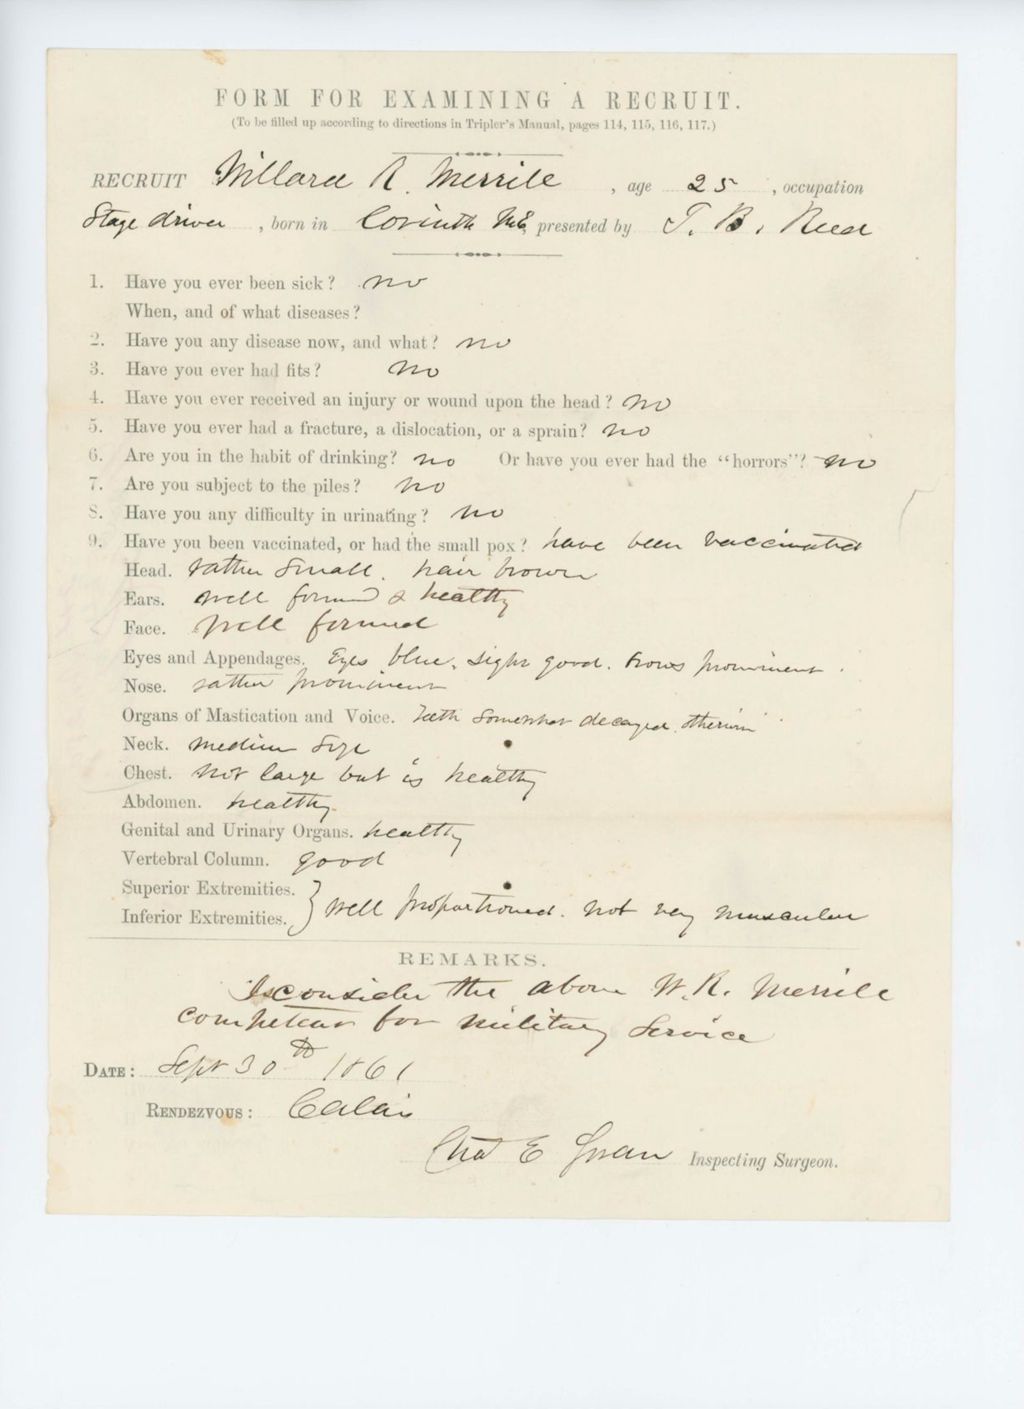 FORM FOR EXAMINING A RECRUIT.
(To be filled up according to directions in Tripler's Manual, pages 114, 115, 116, 117.)
RECRUIT Willard R. Merrill, age 25, occupation
Stage driver, born in Corinth Me, presented by T. B. Reed
1. Have you ever been sick? no
When, and of what diseases?
2. Have you any disease now, and what? no
3. Have you ever had fits? no
4. Have you ever received an injury or wound upon the head? no
5. Have you ever had a fracture, a dislocation, or a sprain? no
6. Are you in the habit of drinking? no Or have you ever had the "horrors"? no
7. Are you subject to the piles? no
8. Have you any difficulty in urinating? no
9. Have you been vaccinated, or had the small pox? have been vaccinated
Head. rather small. hair brown
Ears. well formed & healthy
Face. Well formed
Eyes and Appendages. Eyes blue, sight good. Brows prominent.
Nose. rather prominent
Organs of Mastication and Voice. Teeth somewhat decayed
Neck. medium size
Chest. not large but is healthy
Abdomen. healthy
Genital and Urinary Organs. healthy
Vertebral Column. good
Superior Extremities.
Inferior Extremities. } well proportioned. not very muscular
REMARKS.
I consider the above W. R. Merrill
competent for military service
DATE: Sept 30th 1861
RENDEZVOUS: Calais
Chas E Swan Inspecting Surgeon.